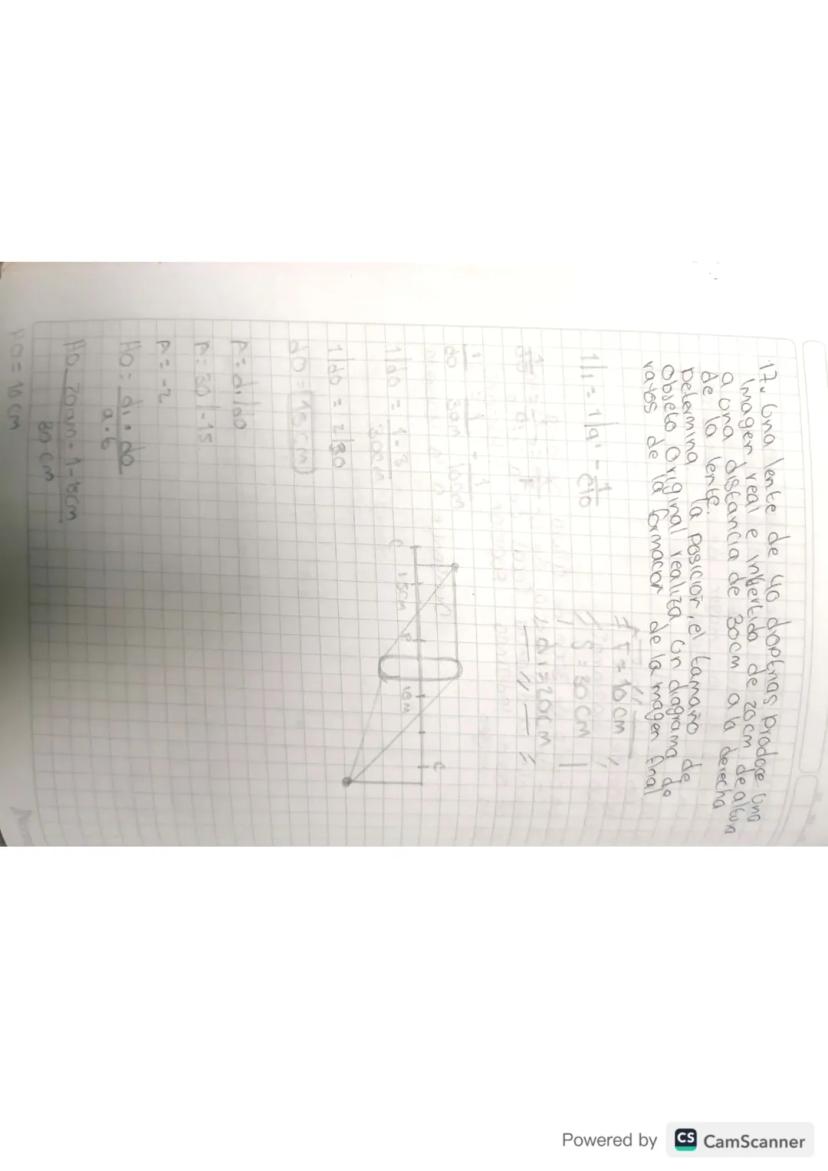 17. Una lente de 40 dioptrías produce una
imagen real e invertida de 20cm de altura
a una distancia de 30cm a la derecha
de la lente.
Determina la posición, el tamaño de
objeto original realiza un diagrama de
rayos de la formacion de la imagen final
F = 10cm
S = 30cm
di = 20cm
1/do = 1-3
30cm
1/do = 2/30
do = 15cm
A = di/do
A = 30/-15
A = -2
Ho = di · do
Ho 20cm · 1-15cm
30cm
Ho = 10cm
C
15cm
F
C
Powered by CS CamScanner